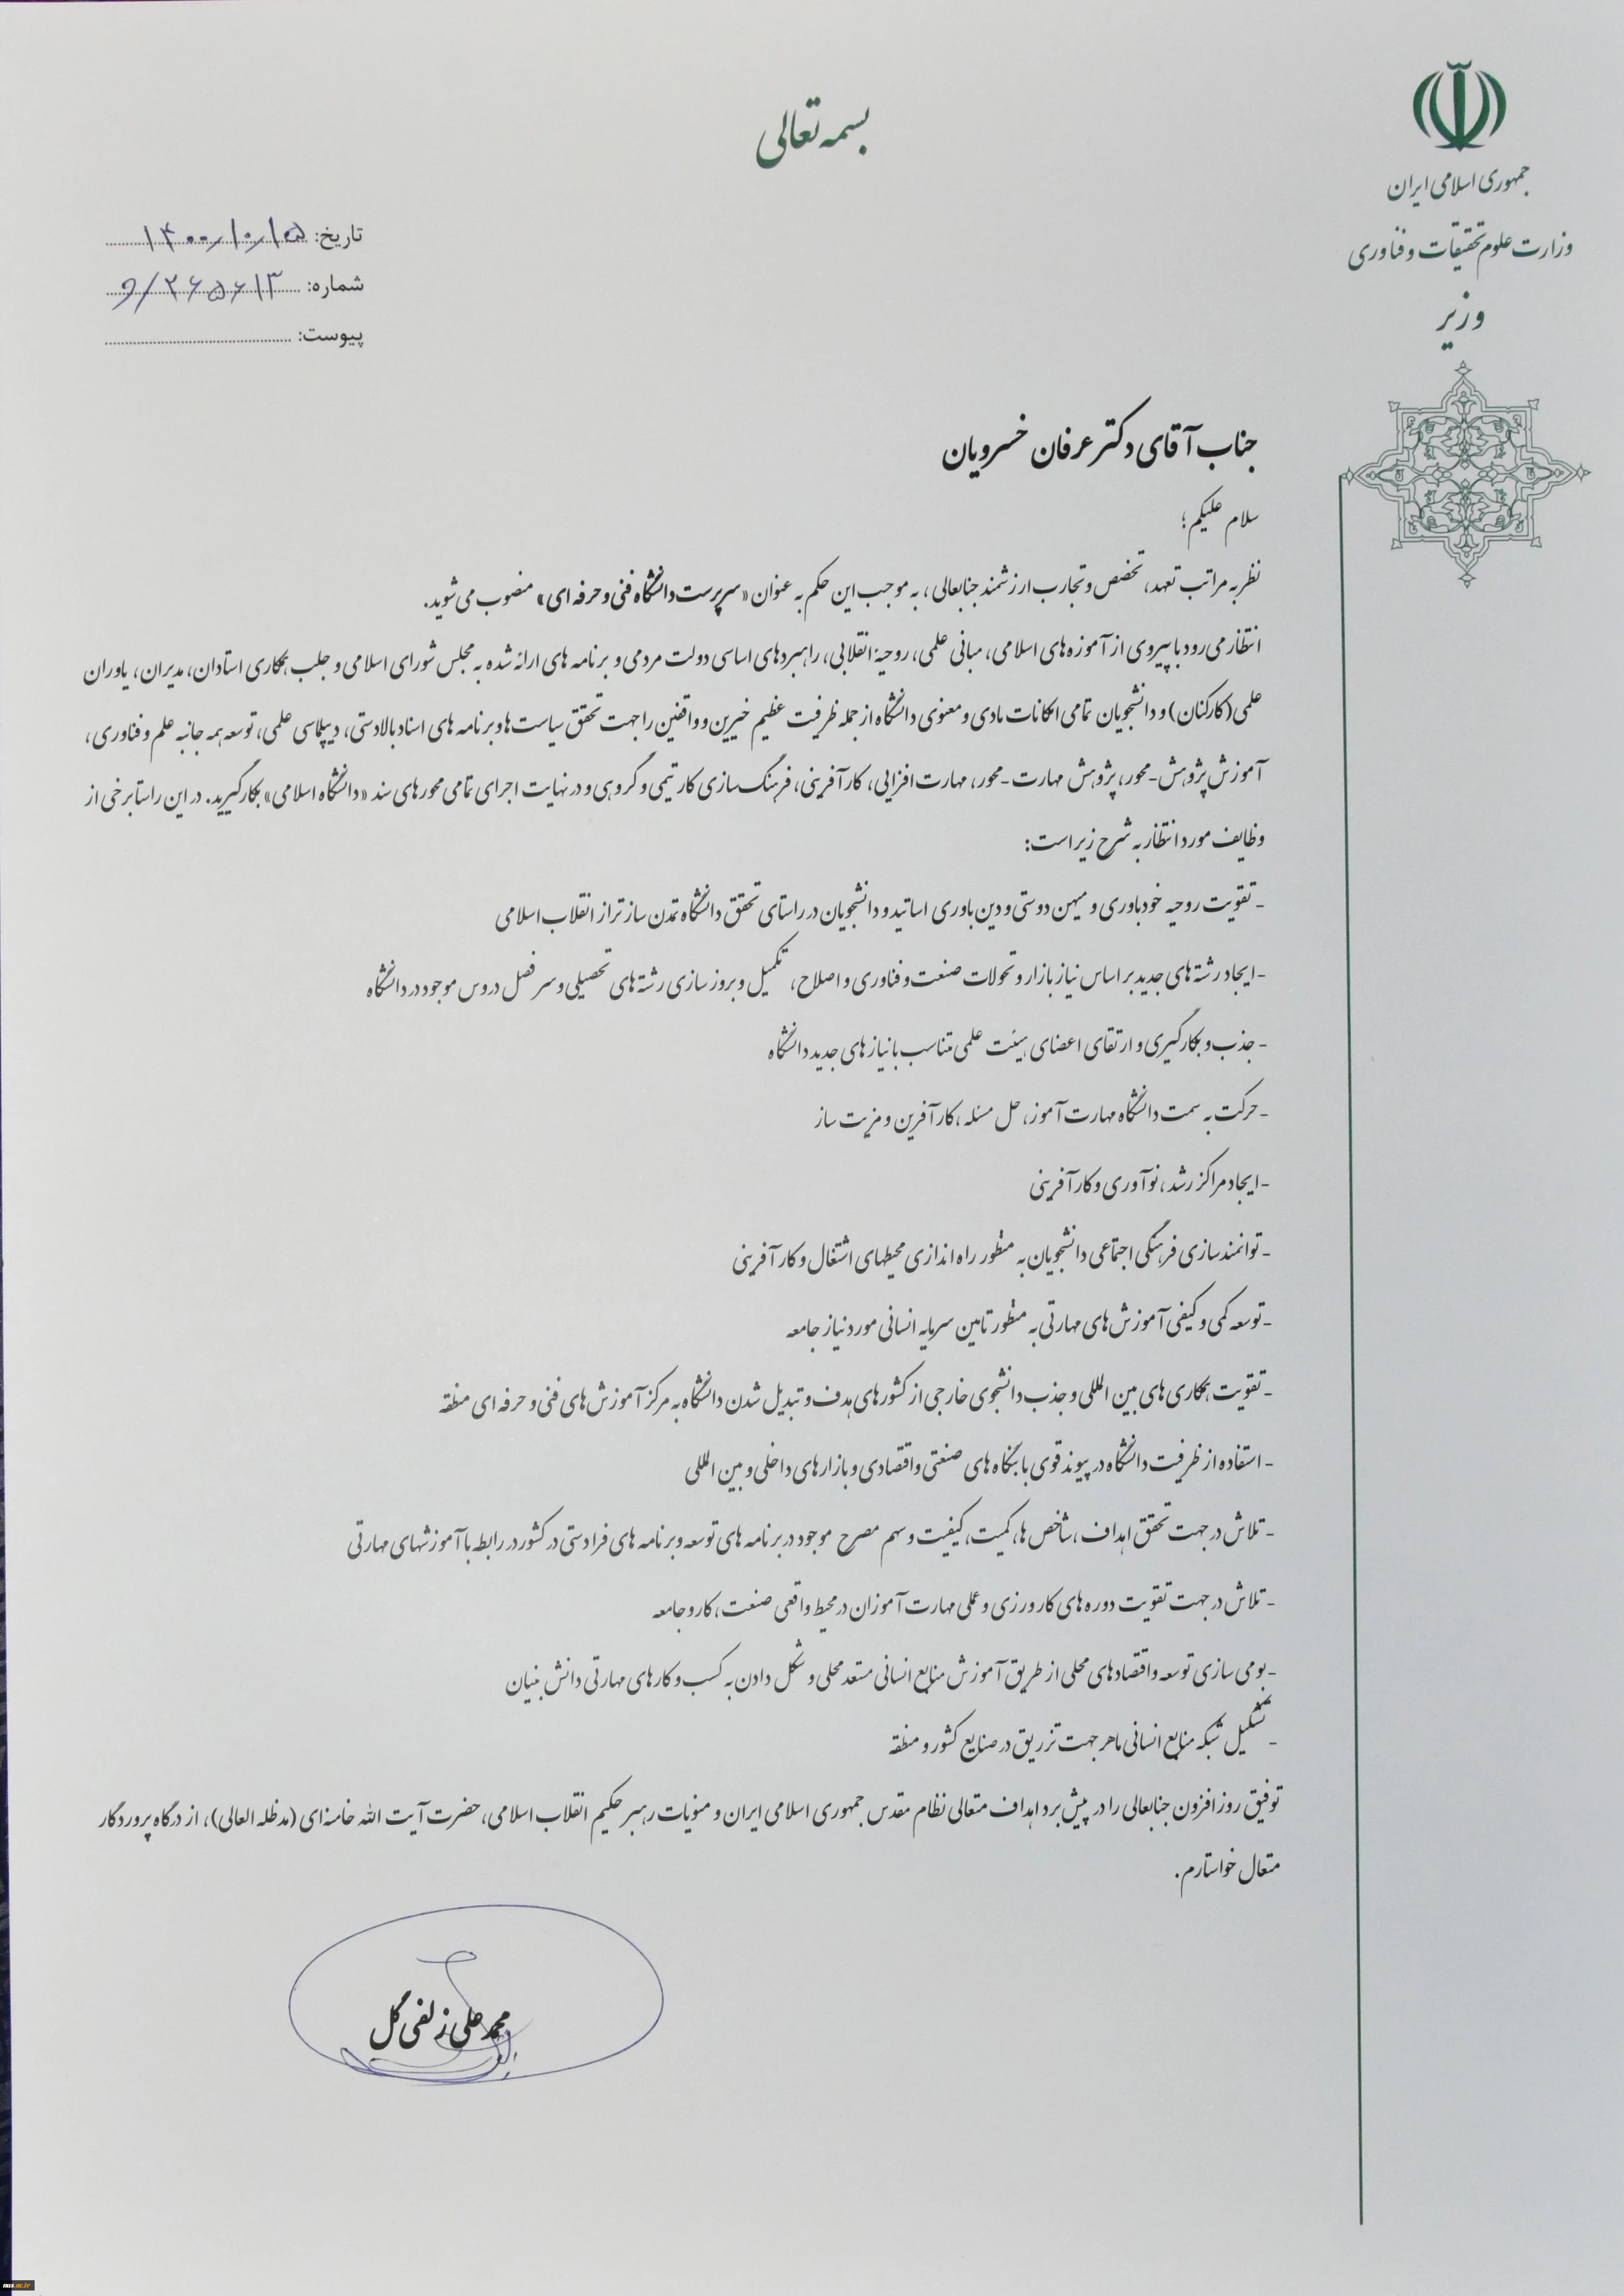 بسمه تعالی
جمهوری اسلامی ایران
وزارت علوم تحقیقات و فناوری
وزیر
تاریخ: ۱۴۰۰/۱۰/۱۵
شماره: ۲۶۵۶۱۳/و
پیوست:
جناب آقای دکتر عرفان خسرویان
سلام علیکم؛
نظر به مراتب تعهد، تخصص و تجارب ارزشمند جنابعالی، به موجب این حکم به عنوان «سرپرست دانشگاه فنی و حرفه ای» منصوب می شوید.
انتظار می رود با پیروی از آموزه های اسلامی، مبانی علمی، روحیۀ انقلابی، راهبردهای اساسی دولت مردمی و برنامه های ارائه شده به مجلس شورای اسلامی و جلب همکاری استادان، مدیران، یاوران
علمی (کارکنان) و دانشجویان تمامی امکانات مادی و معنوی دانشگاه از جمله ظرفیت عظیم خیرین و واقفین را جهت تحقق سیاست ها و برنامه های اسناد بالادستی، دیپلماسی علمی، توسعه همه جانبه علم و فناوری،
آموزش پژوهش-محور، پژوهش مهارت-محور، مهارت افزایی، کارآفرینی، فرهنگ سازی کار تیمی و گروهی و در نهایت اجرای تمامی محورهای سند «دانشگاه اسلامی» بکار گیرید. در این راستا برخی از
وظایف مورد انتظار به شرح زیر است:
- تقویت روحیه خودباوری و میهن دوستی و دین باوری اساتید و دانشجویان در راستای تحقق دانشگاه تمدن ساز تراز انقلاب اسلامی
- ایجاد رشته های جدید بر اساس نیاز بازار و تحولات صنعت و فناوری و اصلاح، تکمیل و بروز سازی رشته های تحصیلی و سر فصل دروس موجود در دانشگاه
- جذب و بکارگیری و ارتقای اعضای هیئت علمی متناسب با نیازهای جدید دانشگاه
- حرکت به سمت دانشگاه مهارت آموز، حل مسئله، کارآفرین و مزیت ساز
- ایجاد مراکز رشد، نوآوری و کارآفرینی
- توانمندسازی فرهنگی اجتماعی دانشجویان به منظور راه اندازی محیطهای اشتغال و کارآفرینی
- توسعه کمی و کیفی آموزش های مهارتی به منظور تامین سرمایه انسانی مورد نیاز جامعه
- تقویت همکاری های بین المللی و جذب دانشجوی خارجی از کشورهای هدف و تبدیل شدن دانشگاه به مرکز آموزش های فنی و حرفه ای منطقه
- استفاده از ظرفیت دانشگاه در پیوند قوی با بنگاه های صنعتی و اقتصادی و بازارهای داخلی و بین المللی
- تلاش در جهت تحقق اهداف، شاخص ها، کمیت، کیفیت و سهم مصرح موجود در برنامه های توسعه و برنامه های فرادستی در کشور در رابطه با آموزشهای مهارتی
- تلاش در جهت تقویت دوره های کارورزی و عملی مهارت آموزان در محیط واقعی صنعت، کار و جامعه
- بومی سازی توسعه و اقتصادهای محلی از طریق آموزش منابع انسانی مستعد محلی و شکل دادن به کسب و کارهای مهارتی دانش بنیان
- تشکیل شبکه منابع انسانی ماهر جهت تزریق در صنایع کشور و منطقه
توفیق روزافزون جنابعالی را در پیش برد اهداف متعالی نظام مقدس جمهوری اسلامی ایران و منویات رهبر حکیم انقلاب اسلامی، حضرت آیت الله خامنه ای (مدظله العالی)، از درگاه پروردگار
متعال خواستارم.
محمد علی زلفی گل